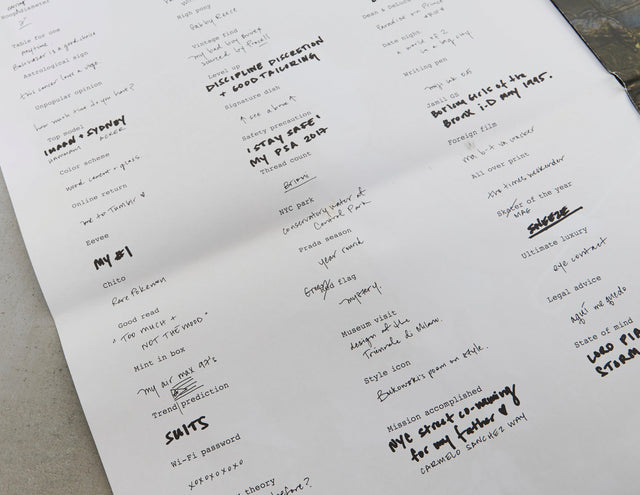 Table for one
anytime
Astrological sign
this cancer love a sign
Unpopular opinion
how much time do you have?
Top model
IMAAN + SYDNEY
HAMMAM
Color scheme
wood, cement + glass.
Online return
me to Tumblr ♥
Eevee
MY #1
Chito
Rare Pokemon
Good read
"TOO MUCH +
NOT THE MOOD"
Mint in box
my air max 97's
Trend prediction
SUITS
Wi-Fi password
xoxoxoxoxo
theory
before?
High pony
Gabby Reece
Vintage find
Level up
DISCIPLINE DISCRETION
+ GOOD TAILORING
Signature dish
↑ see above ↑
Safety precaution
'STAY SAFE'
MY PSA 2017
Thread count
Brioni
NYC park
Conservatory water at
Central Park
Prada season
year round
flag
mystery.
Museum visit
design at the
Triennale di Milano.
Style icon
Bukowski's poem on style.
Mission accomplished
NYC street co-naming
for my father ♥
CARMELO SANCHEZ WAY
Paradise on
Date night
a world of 2
in a big city.
Writing pen
Jamil GS
Boricua Girls of the
Bronx i.D May 1995.
Foreign film
All over print
the times weekender
Skater of the year
MAG
SNEEZE
Ultimate luxury
eye contact
Legal advice
aquí me quedo
State of mind
LORD
STORM